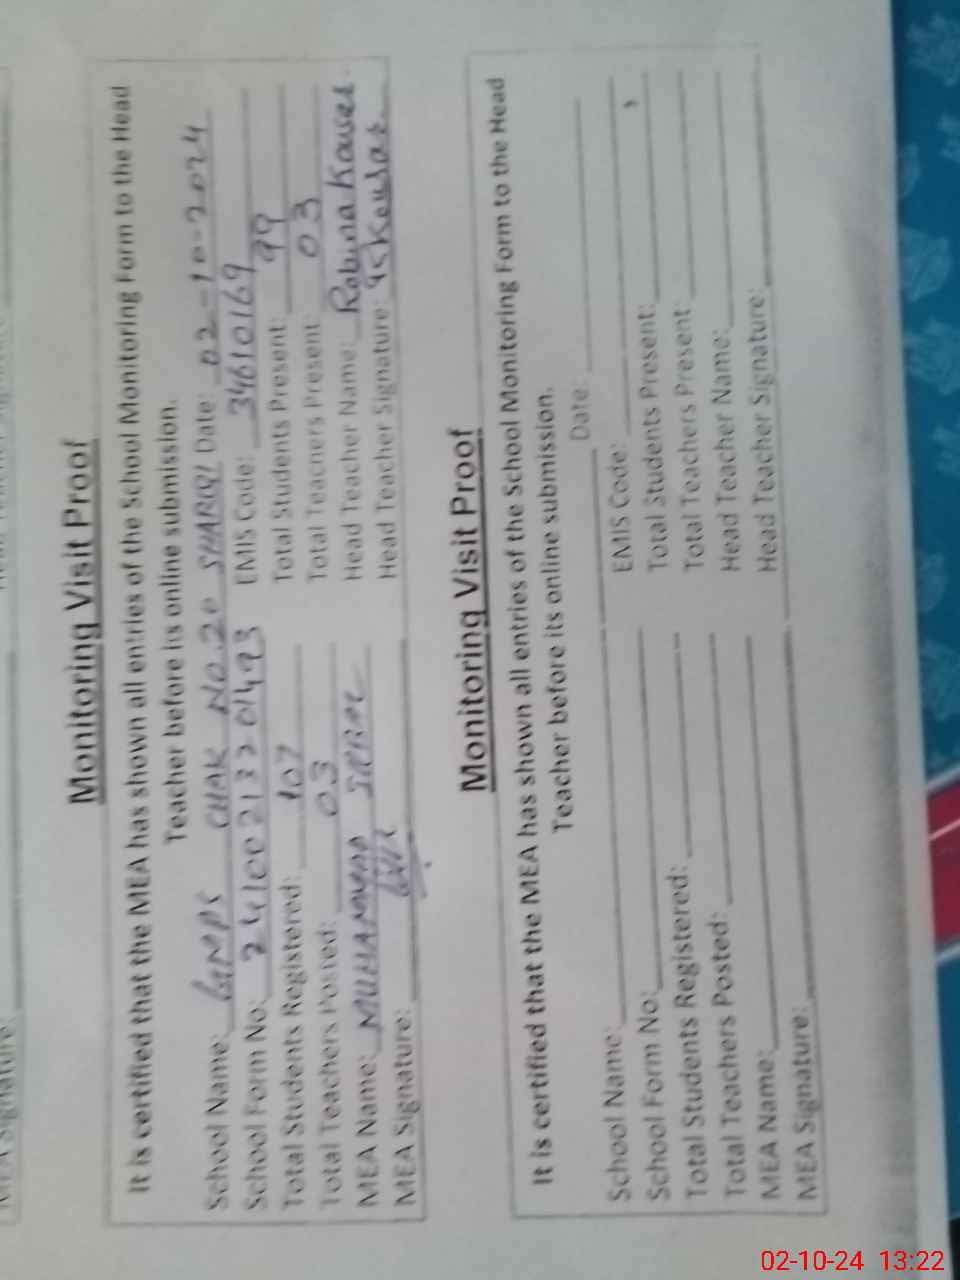 MEA Signature:
Monitoring Visit Proof
It is certified that the MEA has shown all entries of the School Monitoring Form to the Head
Teacher before its online submission.
School Name: GMPS CHAK NO.20 SHARQI Date: 02-10-2024
School Form No: EMIS Code: 34610169
Total Students Registered: 107 Total Students Present: 99
Total Teachers Posted: 03 Total Teachers Present: 03
MEA Name: MUHAMMAD Head Teacher Name: Robina Kouser.
MEA Signature: Head Teacher Signature: Kousar
Monitoring Visit Proof
It is certified that the MEA has shown all entries of the School Monitoring Form to the Head
Teacher before its online submission.
School Name: Date:
School Form No: EMIS Code:
Total Students Registered: Total Students Present:
Total Teachers Posted: Total Teachers Present:
MEA Name: Head Teacher Name:
MEA Signature: Head Teacher Signature:
02-10-24 13:22